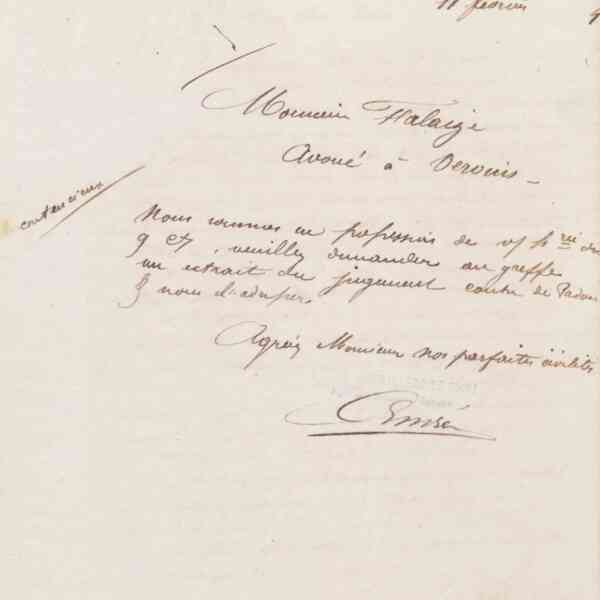 11 février 4
Monsieur Falaize
Avoué à Vervins
contencieux
Nous sommes en possession de v/ h
9 ct, veuillez demander au greffe
un extrait du jugement contre de
& nous l'adresser.
Agréez Monsieur nos parfaites civilités